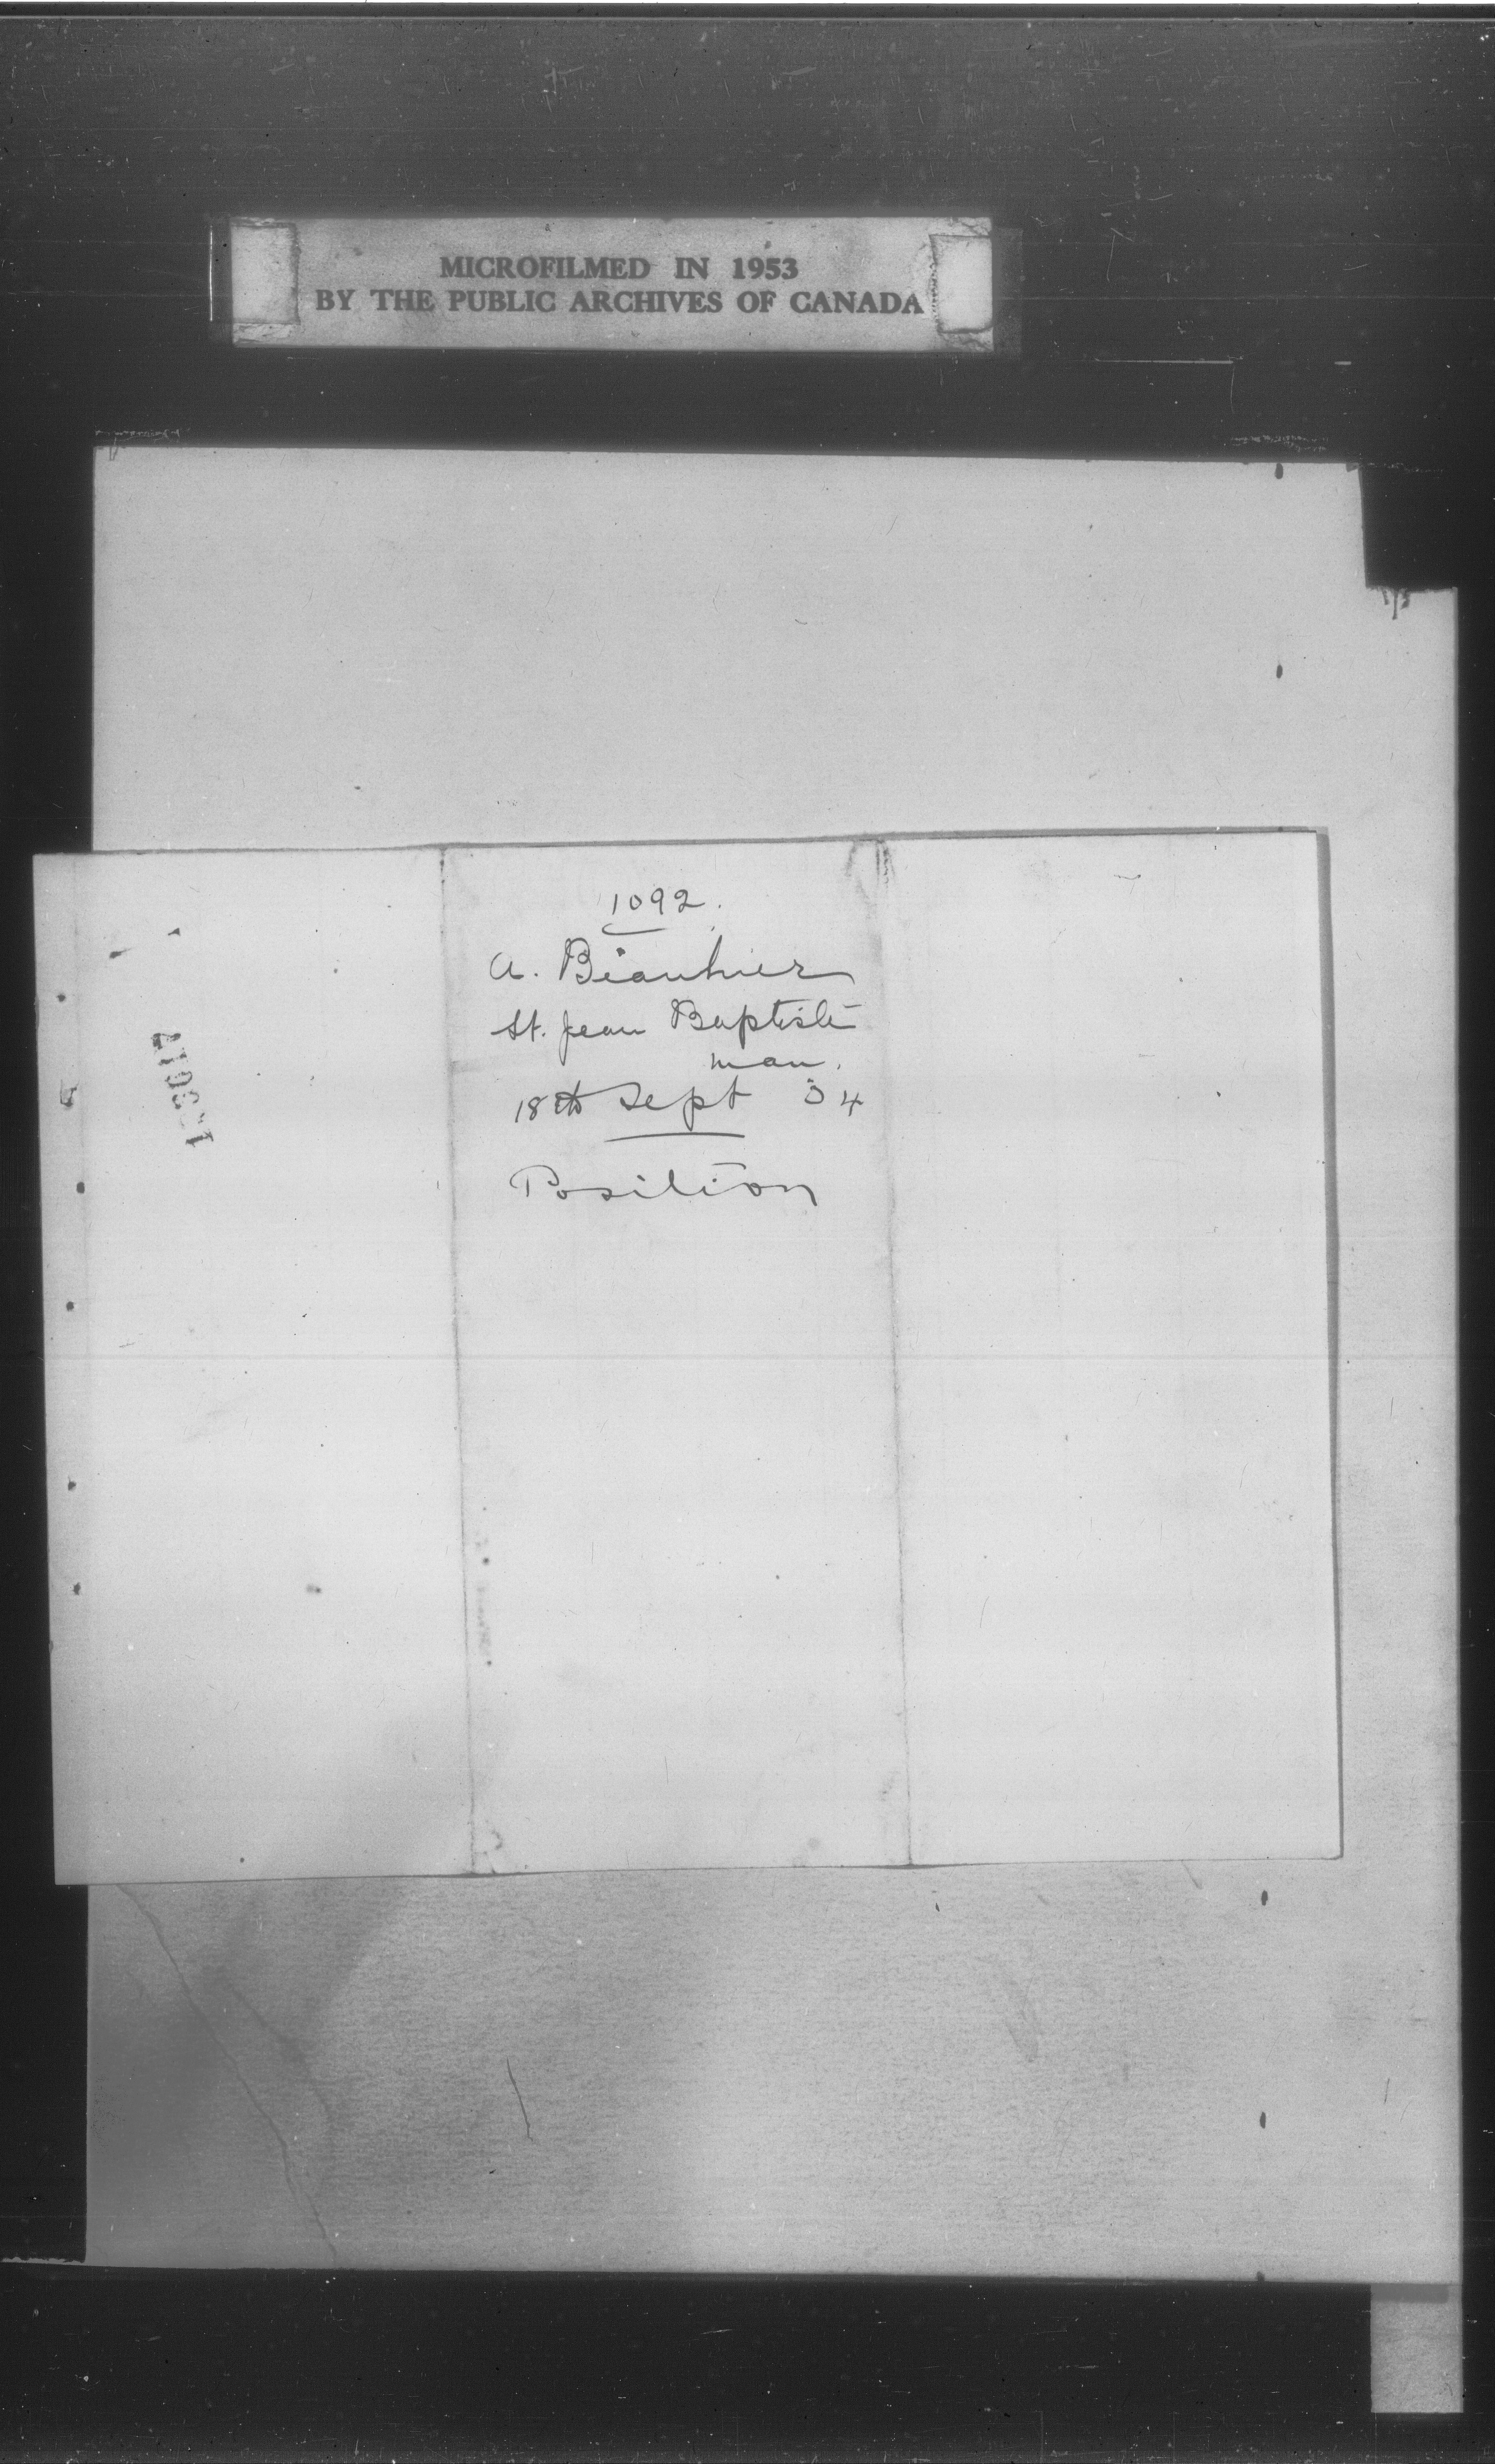 MICROFILMED IN 1953
BY THE PUBLIC ARCHIVES OF CANADA
1092.
A.
St. Jean Baptiste
Man.
18th Sept 04
Position